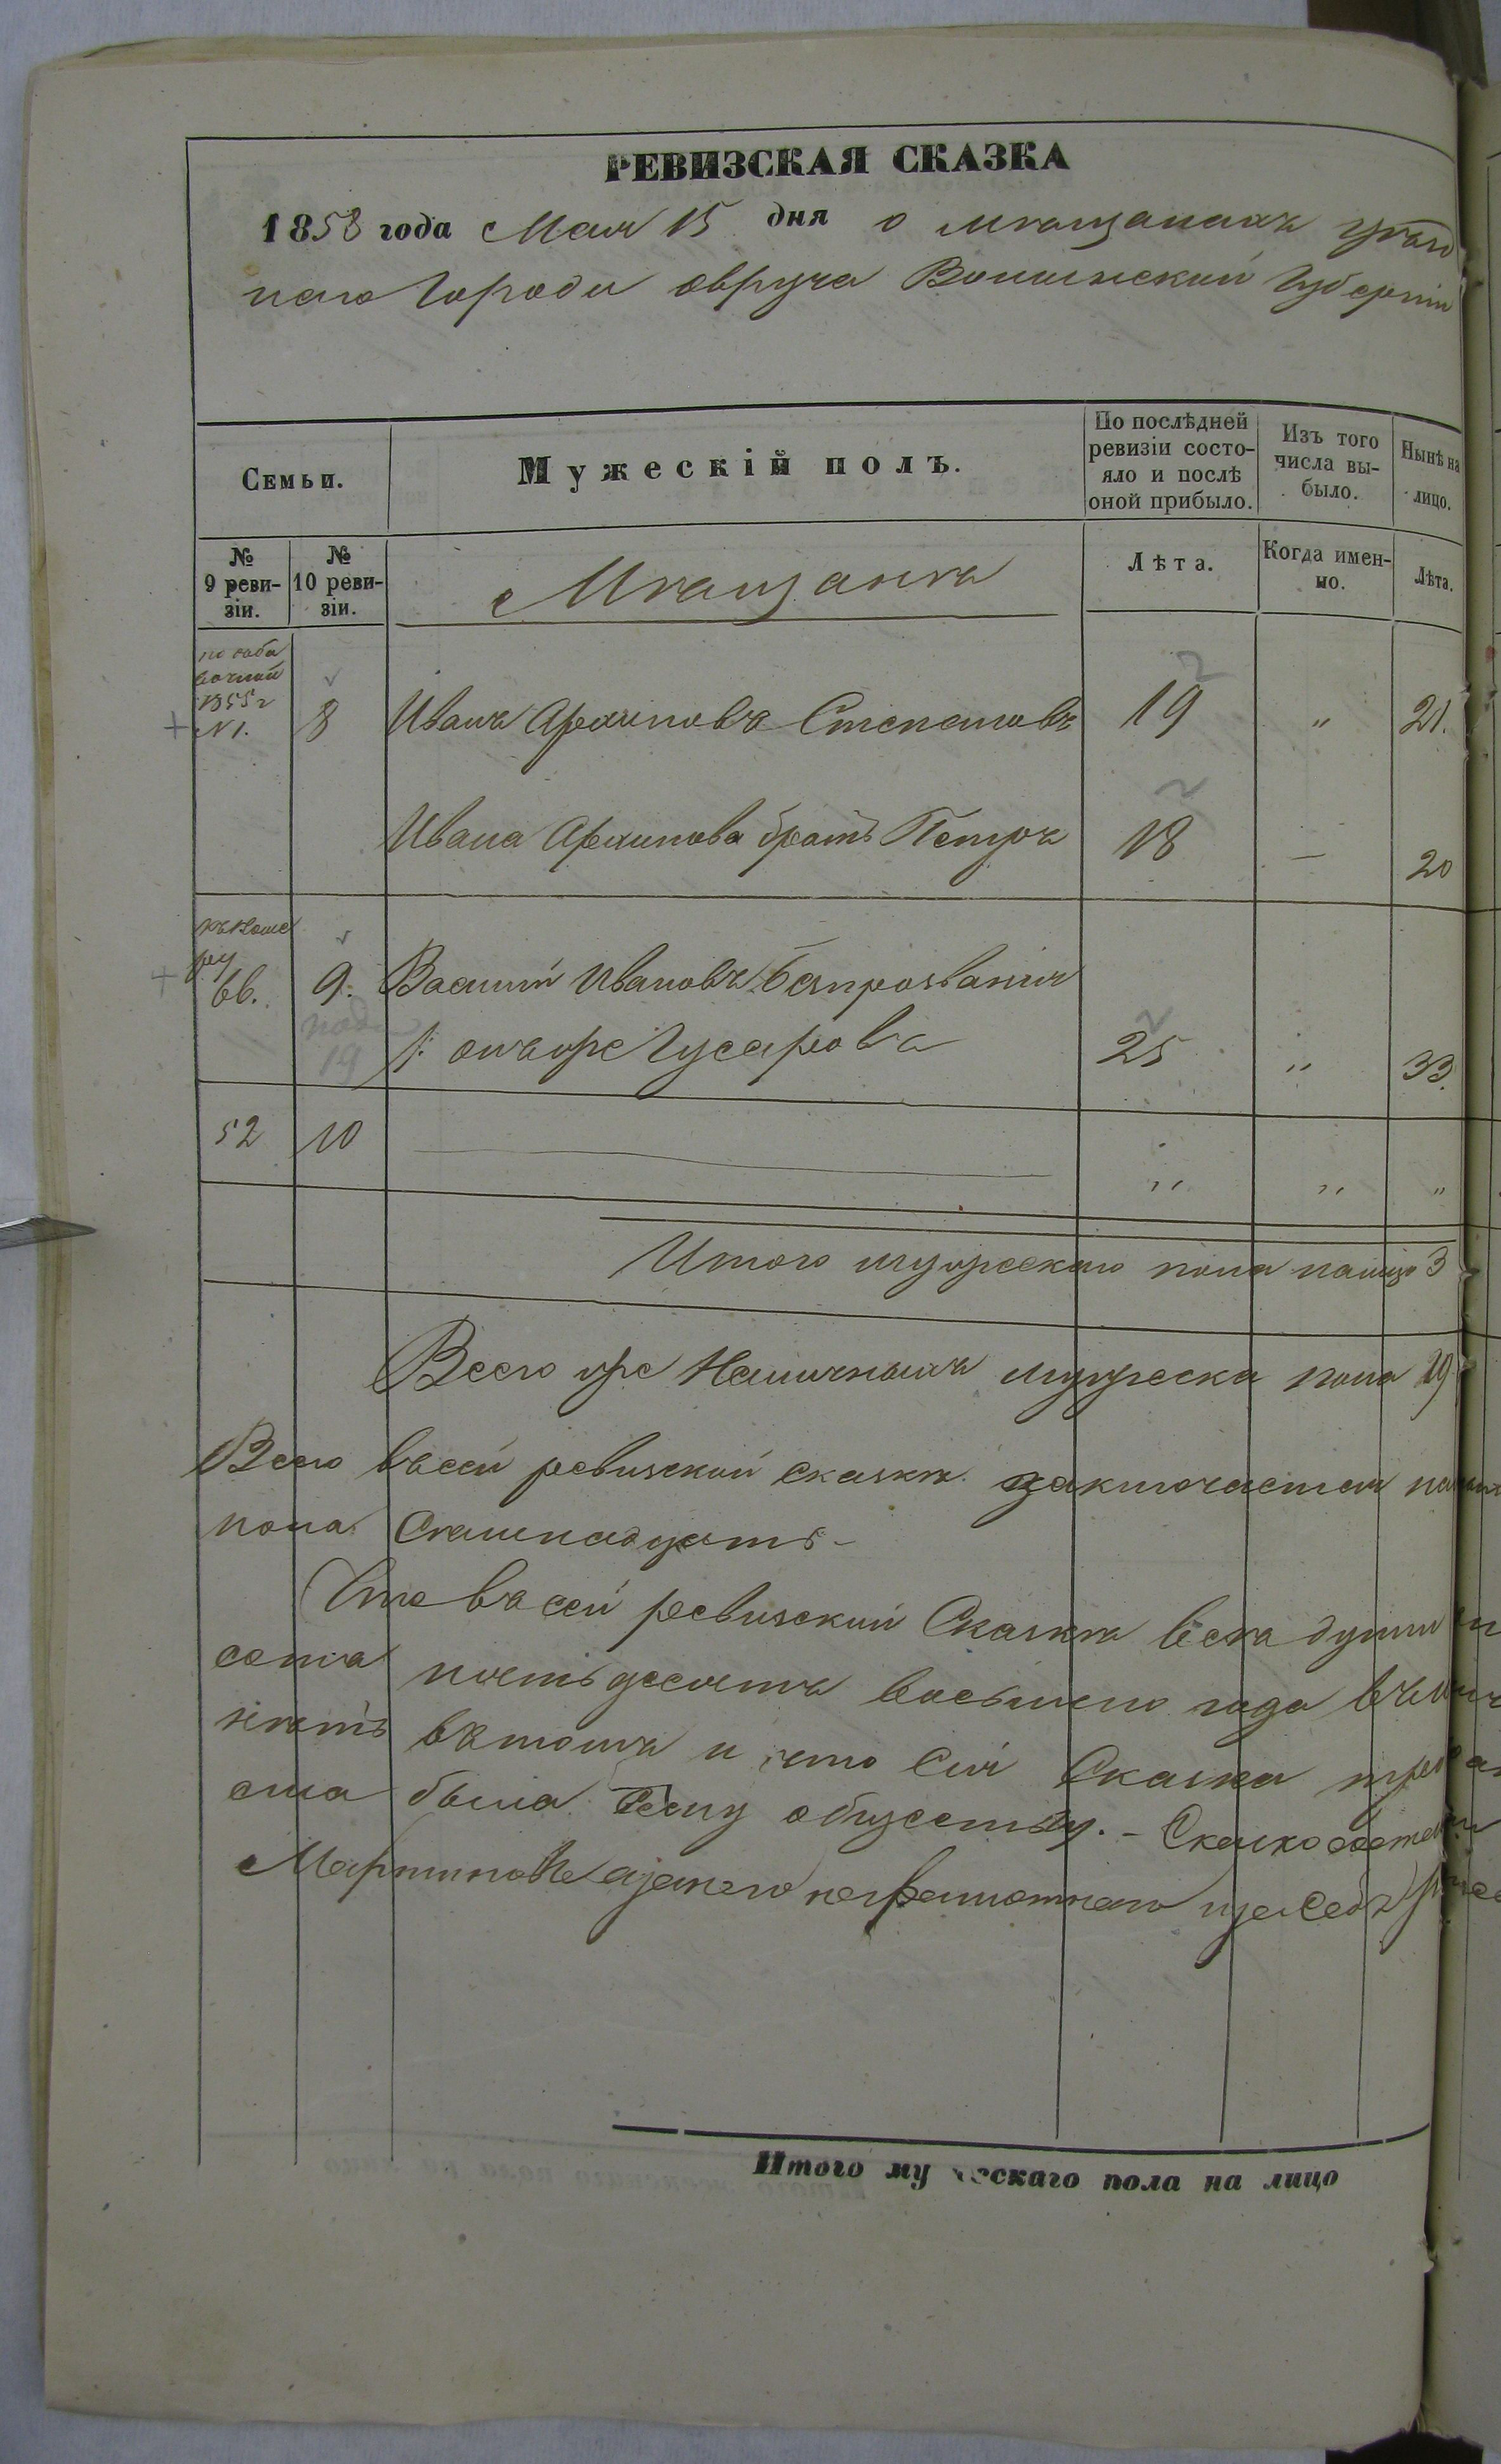 РЕВИЗСКАЯ СКАЗКА
1858 года Мая 15 дня о мѣщанахъ уѣзд
наго Города овруча Волынской Губерніи
Семьи.
Мужескій полъ.
По послѣдней
ревизіи состо-
яло и послѣ
оной прибыло.
Изъ того
числа вы-
было.
Нынѣ на
лицо.
№
9 реви-
зіи.
№
10 реви-
зіи.
Мѣщанѣ
Лѣта.
Когда имен-
но.
Лѣта.
1855г
N 1. 8 Иванъ Архиповъ Степановъ 19 " 21.
Ивана Архипова братъ Петръ 18 — 20
къ номе
ру
66. 9. Василій Ивановъ безпрозванія
онъ же Гусарова 25 " 33.
19
52 10 " " "
Итого мужескаго пола налицо 3
Всего же Наличныхъ мужеска пола 19
Всего въ сей ревизской сказкѣ заключается
пола
Что въ сей ревизской Сказкѣ всѣ души
сотъ пятьдесятъ восьмаго года въ чемъ
нѣтъ въ томъ и что Сія Сказка
ема была всему обществу. –
Мартинов неграмотнаго
Итого му ескаго пола на лицо